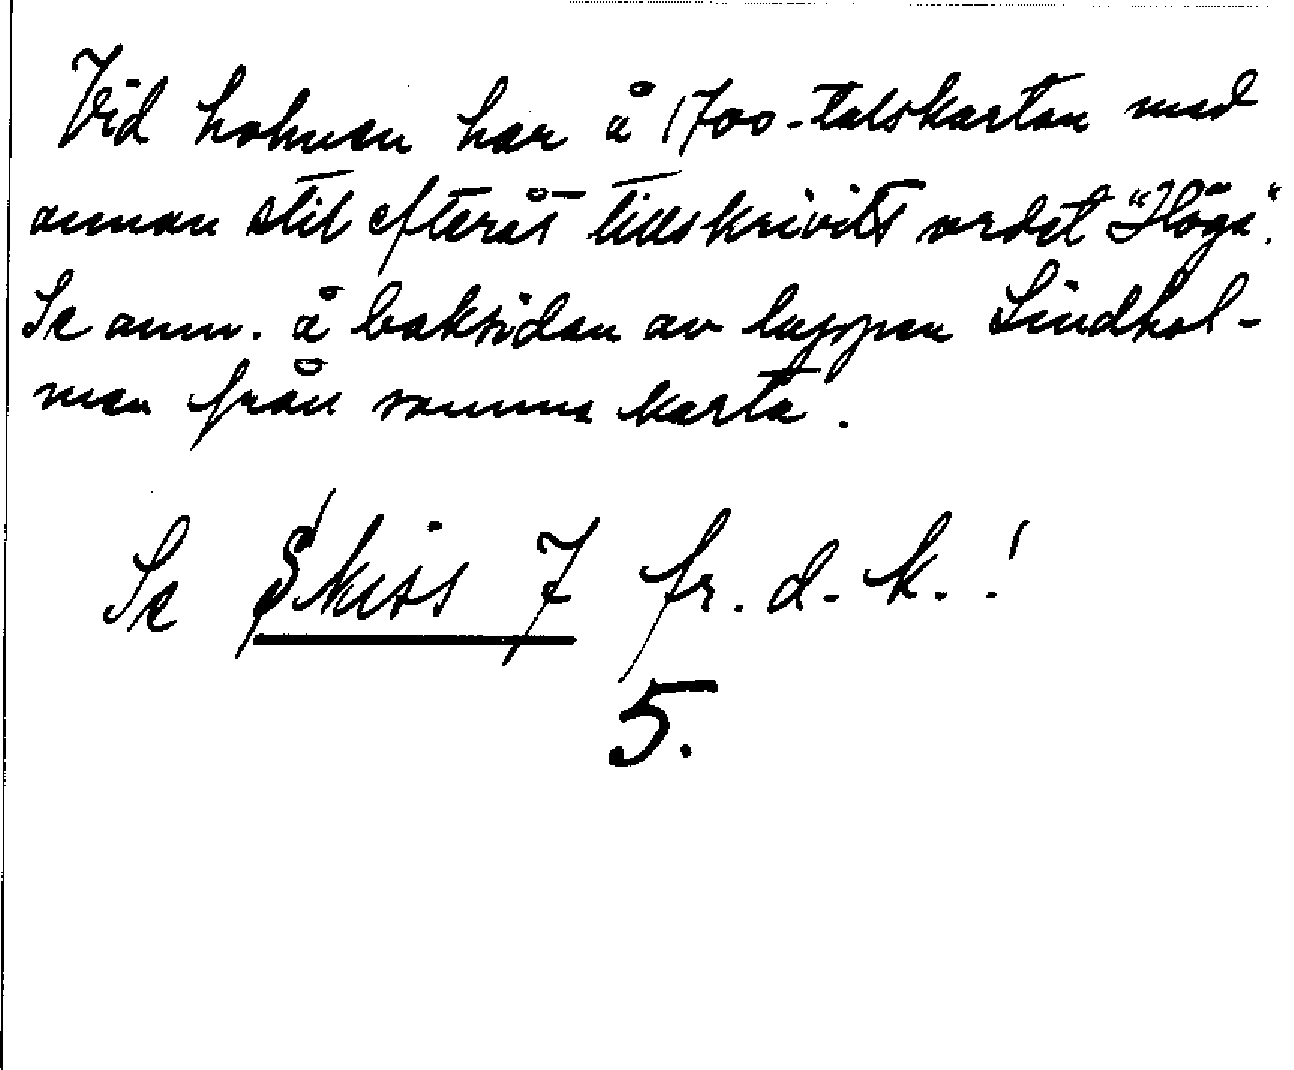 Vid holmen har å 1700-talskartan med
annan stil efteråt tillskrivits ordet "Höga".
Se anm. å baksidan av lappen Lindhol-
men från samma karta.
Se Skiss 7 fr. d. k.!
5.